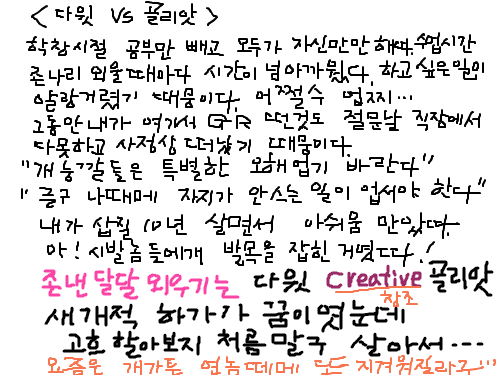 < 다윗 VS 골리앗 >
학창시절 공부만 빼고 모두가 자신만만 해따. 수업시간
존나리 외울때마다 시간이 넘아까웠다. 하고싶은일이
아랑거렸기 때문이다. 어쩔수 업찌...
그동안 내가 여기서 떤것도 절문날 직장에서
다못하고 사정상 떠났기 때문이다.
"개 능깔들은 특별한 오해업기 바란다"
" 즐구 나때메 자지가 안스는 일이 업서야 한다"
내가 삽질 10년 살면서 아쉬움 만았따.
아! 시발놈들에개 발목을 잡힌 거였다!
존낸달달 외우기는 다윗 creative 골리앗
창조
새개적 하가가 꿈이였눈데
고흐 할아보지 처름 말구 살아서...
요즘은 개가튼 연놈때메 모든 지겨워질라구"